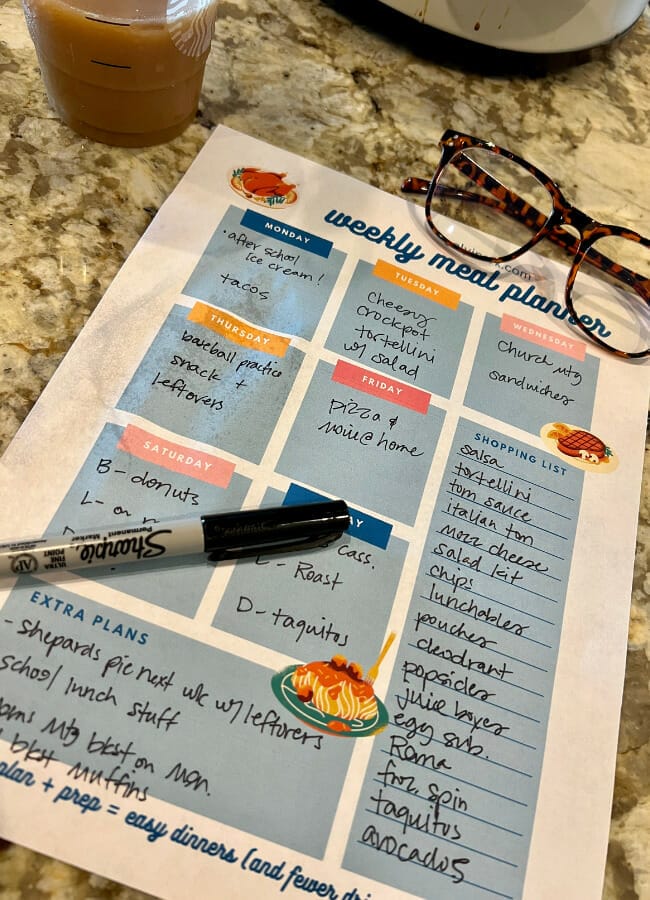 weekly meal planner
.com
MONDAY
·after school
Ice cream!
tacos
TUESDAY
Cheesy
Crockpot
tortellini
w/ salad
WEDNESDAY
Church mtg
sandwiches
THURSDAY
baseball practice
snack +
leftovers
FRIDAY
pizza &
movie@home
SATURDAY
B - donuts
L -
AY
cass.
L - Roast
D - taquitos
SHOPPING LIST
salsa
tortellini
tom sauce
italian tom
Mozz cheese
salad kit
chips
lunchables
pouches
deodrant
popsicles
juice boxes
egg sub.
Roma
froz. spin
taquitos
avocados
EXTRA PLANS
- Shepards pie next wk w/ leftovers
school lunch stuff
Mtg bkst on Mon.
bkst muffins
plan + prep = easy dinners (and fewer
Sharpie
Permanent Marker
ULTRA
FINE
POINT
AP